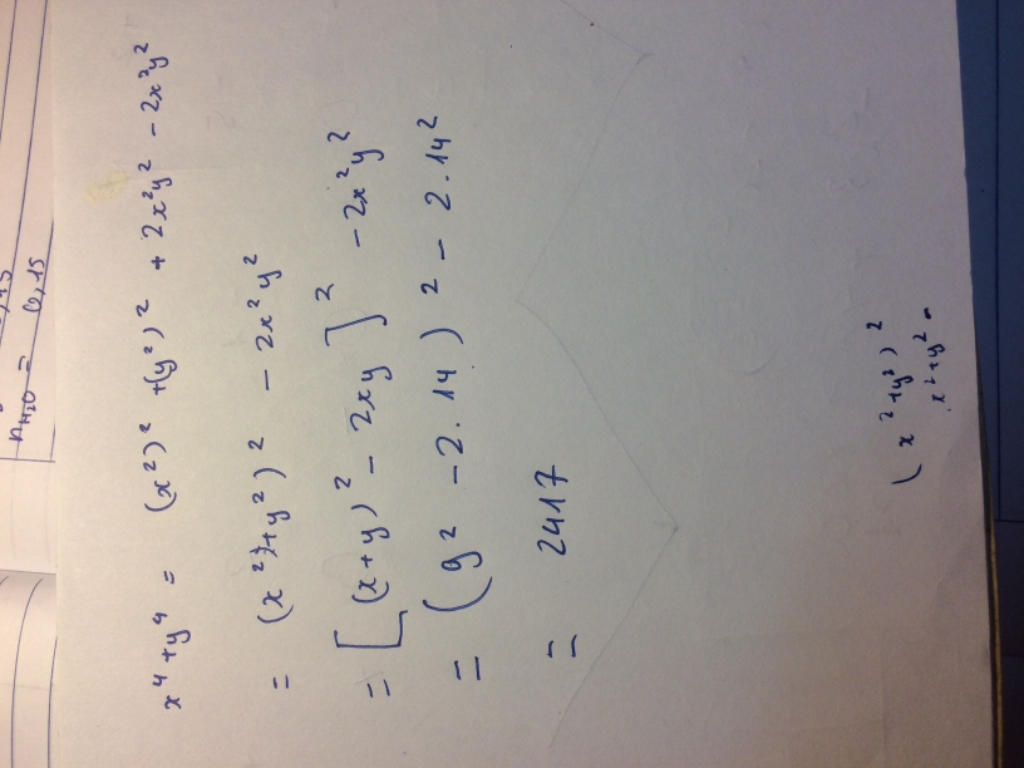 n_H₂O = 0,15
x⁴+y⁴ = (x²)² +(y²)² + 2x²y² - 2x²y²
= (x²+y²)² - 2x²y²
= [(x+y)² - 2xy]² - 2x²y²
= (9² - 2.14)² - 2.14²
= 2417
(x²+y²)²
x²+y² -